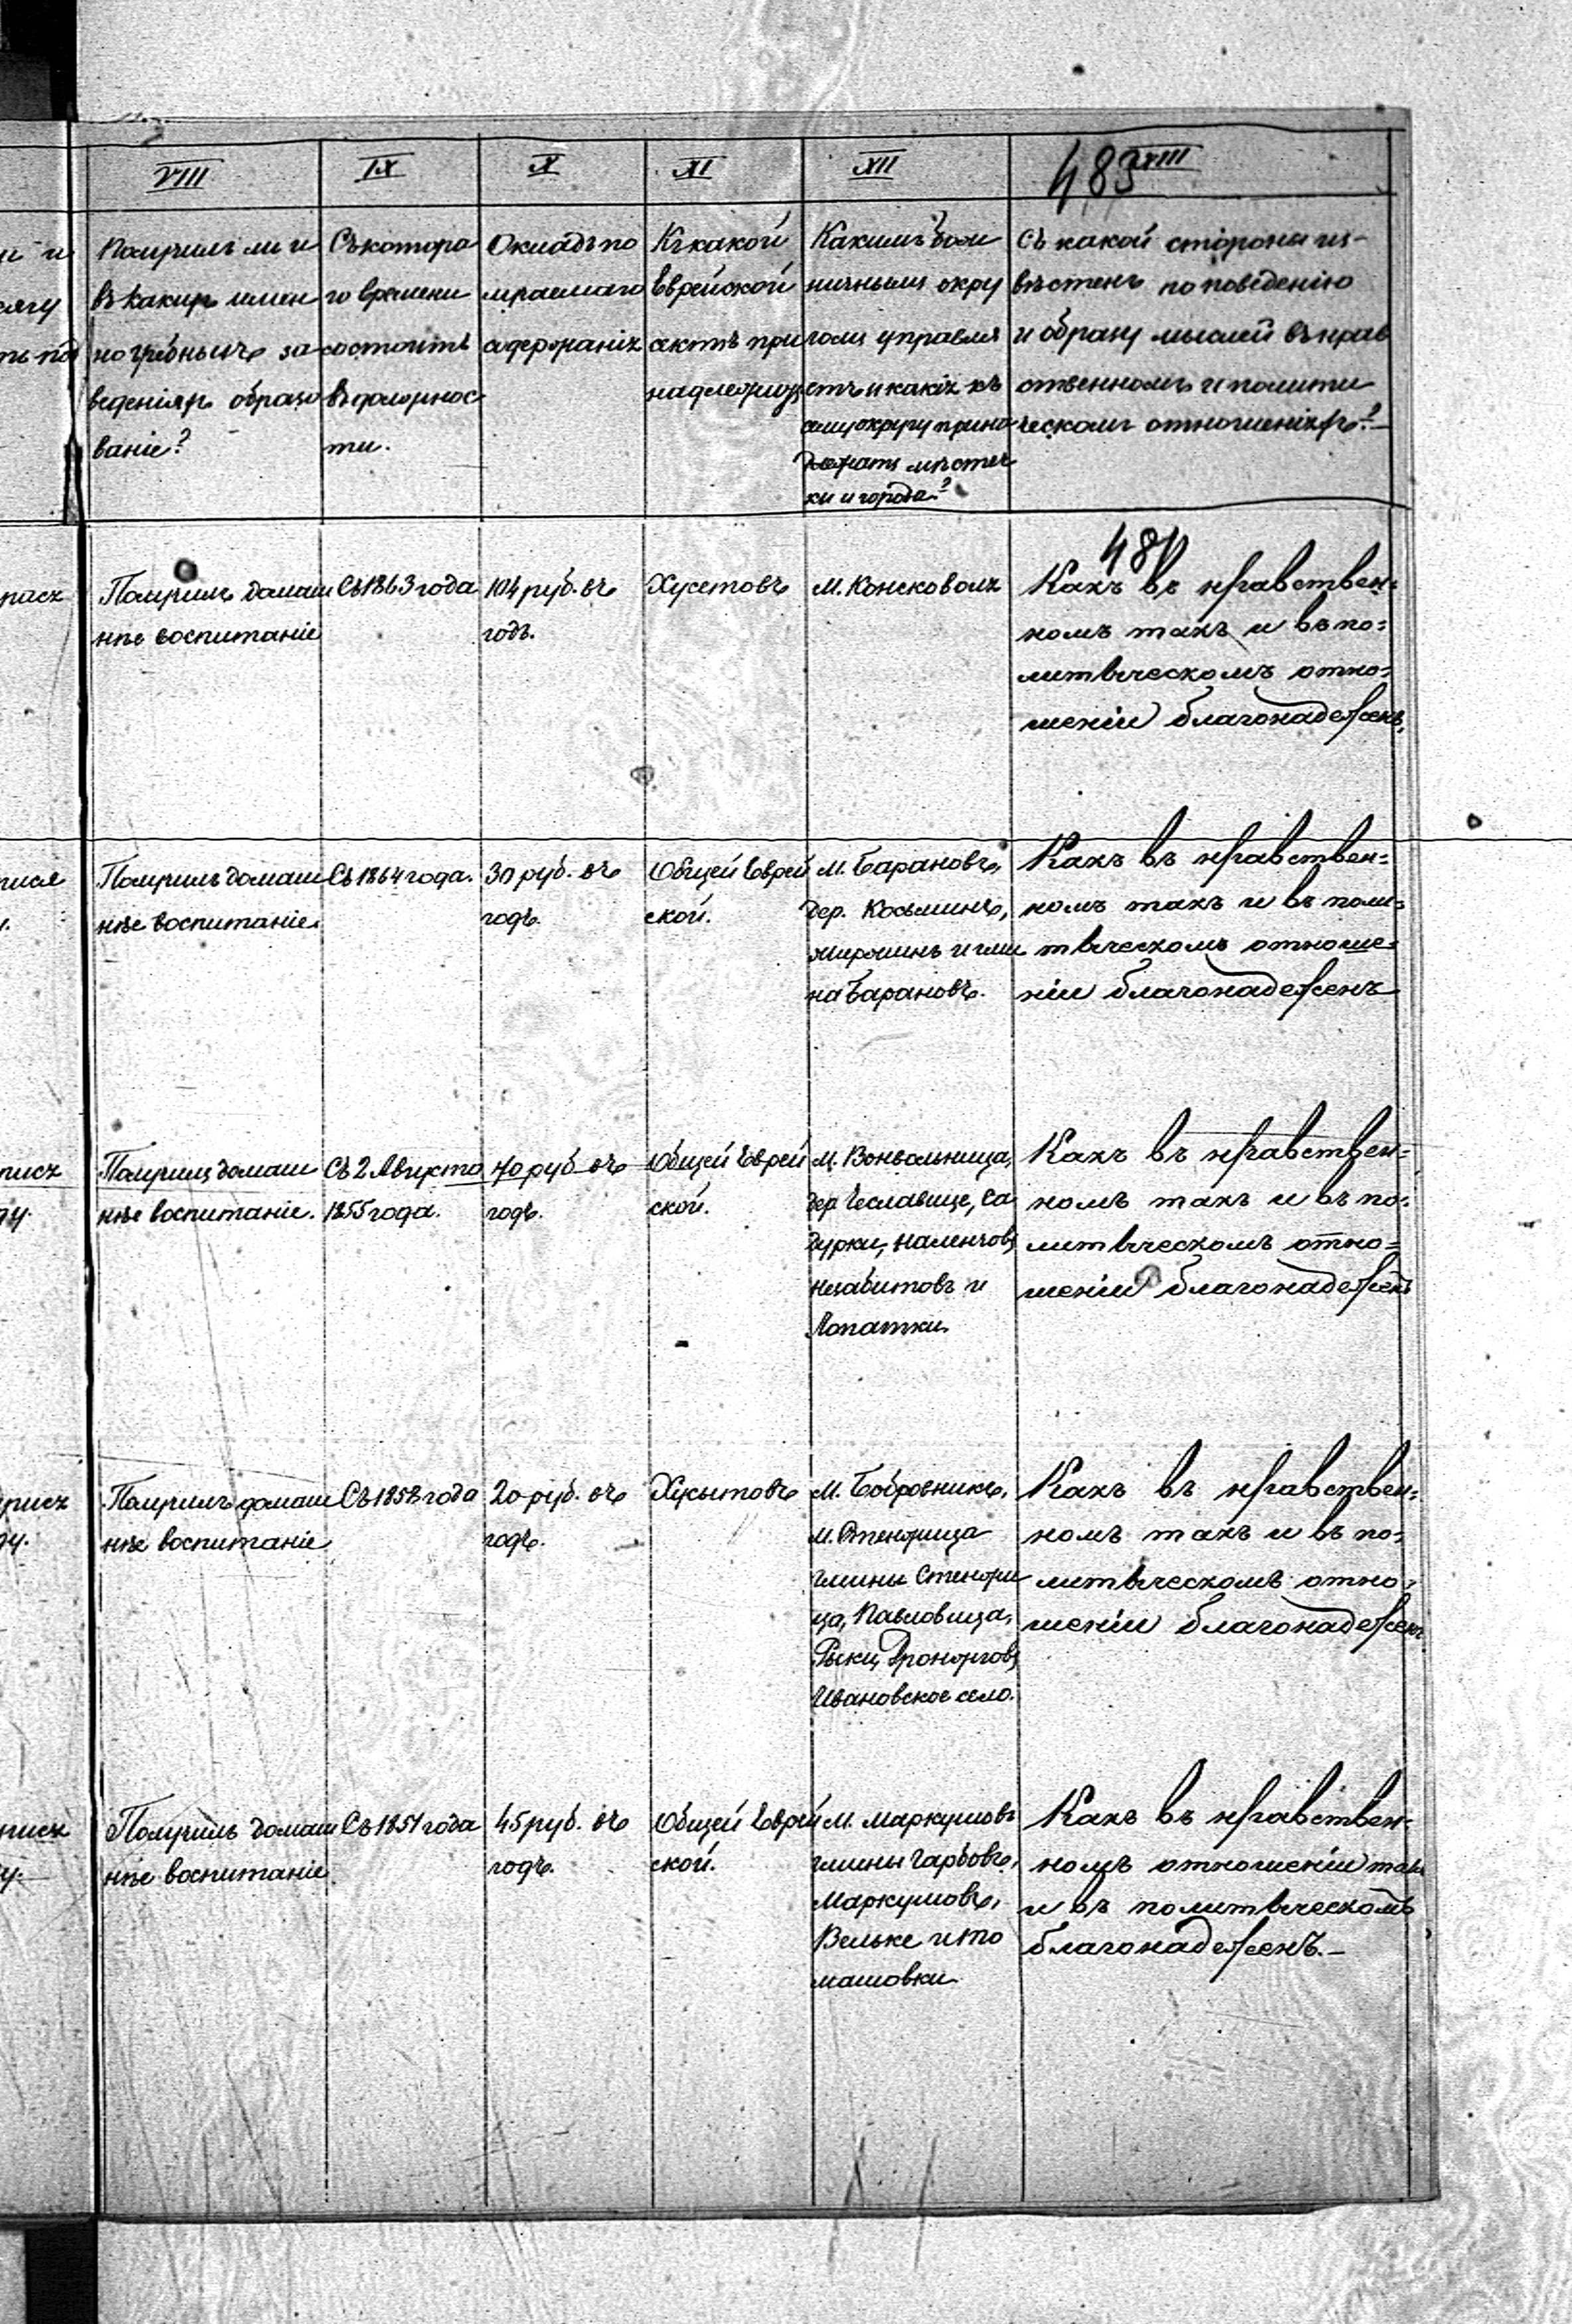 VIII
IX
X
XI
XII
XIII
483
Получилъ ли и
въ какихъ имен
но учебныхъ за
веденіяхъ образо
ваніе?
Съ котора
го времени
состоитъ
въ должнос
ти.
Окладъ по
лучаемаго
содержанія
Къ какой
Еврейской
сектѣ при
надлежитъ
Какимъ божн
ничнымъ окру
гомъ управля
етъ и какія къ
сему округу прина
длежатъ мѣстеч
ки и города?
Съ какой стороны из-
вѣстенъ по поведенію
и образу мыслей въ нрав
ственномъ и полити
ческомъ отношеніяхъ?-
484
Получилъ домаш
нѣе воспитаніе
Съ 1863 года
104 руб. въ
годъ.
Хуситовъ
М. Консковоля
Какъ въ нравствен=
номъ такъ и въ по=
литическомъ отно=
шеніи благонадеженъ,
Получилъ домаш
нѣе воспитаніе.
Съ 1864 года.
30 руб. въ
годъ.
Общей Еврей
ской.
М. Барановъ,
дер. Косьминъ,
Жирошинъ и гми
на Барановъ.
Какъ въ нравствен=
номъ такъ и въ поли=
тическомъ отноше=
ніи благонадеженъ
Получилъ домаш
нѣе воспитаніе.
Съ 2 Августа
1855 года.
40 руб въ
годъ.
Общей Еврей
ской.
М. Вонвольница,
дер Чеславице, Са
дурки, Наленчовъ,
Незабитовъ и
Лопатки.
Какъ въ нравствен=
номъ такъ и въ по=
литическомъ отно=
шеніи благонадеженъ
Получилъ домаш
нѣе воспитаніе
Съ 1858 года
20 руб. въ
годъ.
Хуситовъ
М. Бобровники,
М. Стенжица
гмины Стенжи
ца, Павловица,
Рыки, Дронжгов,
Ивановское село.
Какъ въ нравствен=
номъ такъ и въ по=
литическомъ отно=
шеніи благонадеженъ
Получилъ домаш
нѣе воспитаніе
Съ 1851 года
45 руб. въ
годъ.
Общей Еврей
ской.
М. Маркушовъ
гмины Гарбовъ,
Маркушовъ,
Вельке и То
машовки.
Какъ въ нравствен=
номъ отношеніи такъ
и въ политическомъ
благонадеженъ.-